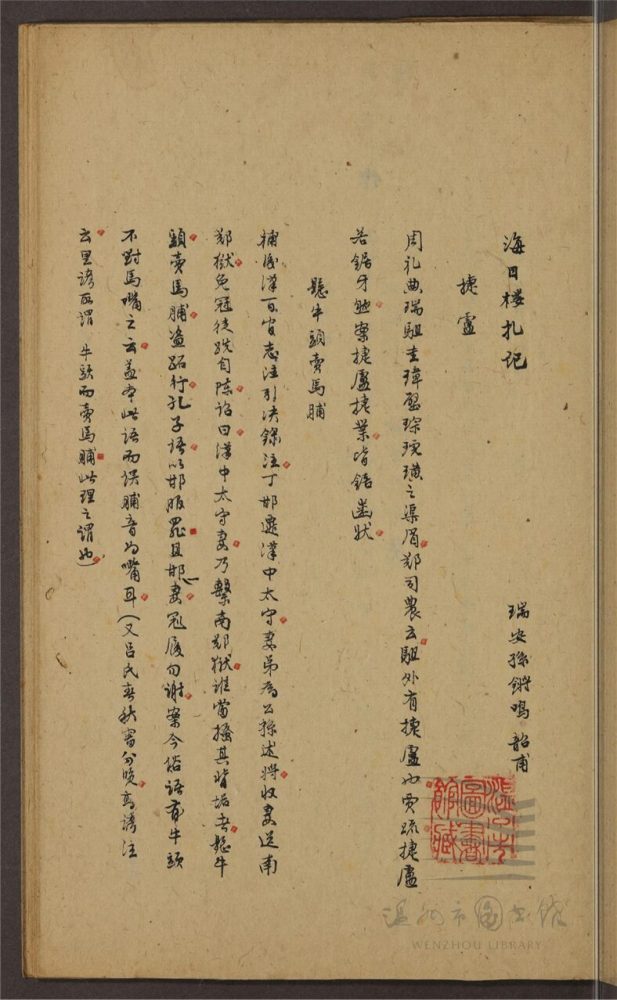 海日楼札记
瑞安孫鏘鳴韶甫
捷盧
周礼典瑞駔圭璋璧琮琥璜之渠眉鄭司農云駔外有捷盧也賈疏捷盧
若鋸牙然案捷盧捷業皆鋸齒狀
懸牛頭賣馬脯
補後漢百官志注引决錄注丁邯遷漢中太守妻弟為公孫述將收妻送南
鄭獄免冠徒跣自陳詔曰漢中太守妻乃繫南鄭獄誰當搔其背垢者懸牛
頭賣馬脯盜跖行孔子語以邯服罪且邯一妻冠履勿謝案今俗語有牛頭
不對馬嘴之云盖本此語而誤脯音为嘴耳(又吕氏春秋審分覽高誘注
云里諺所謂 牛頭而賣馬脯此理之謂也)
溫州市圖書館藏
温州市图书馆
WENZHOU LIBRARY